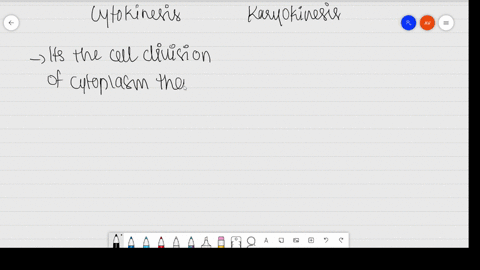 Cytokinesis Karyokinesis
→ Its the cell division
of cytoplasm the